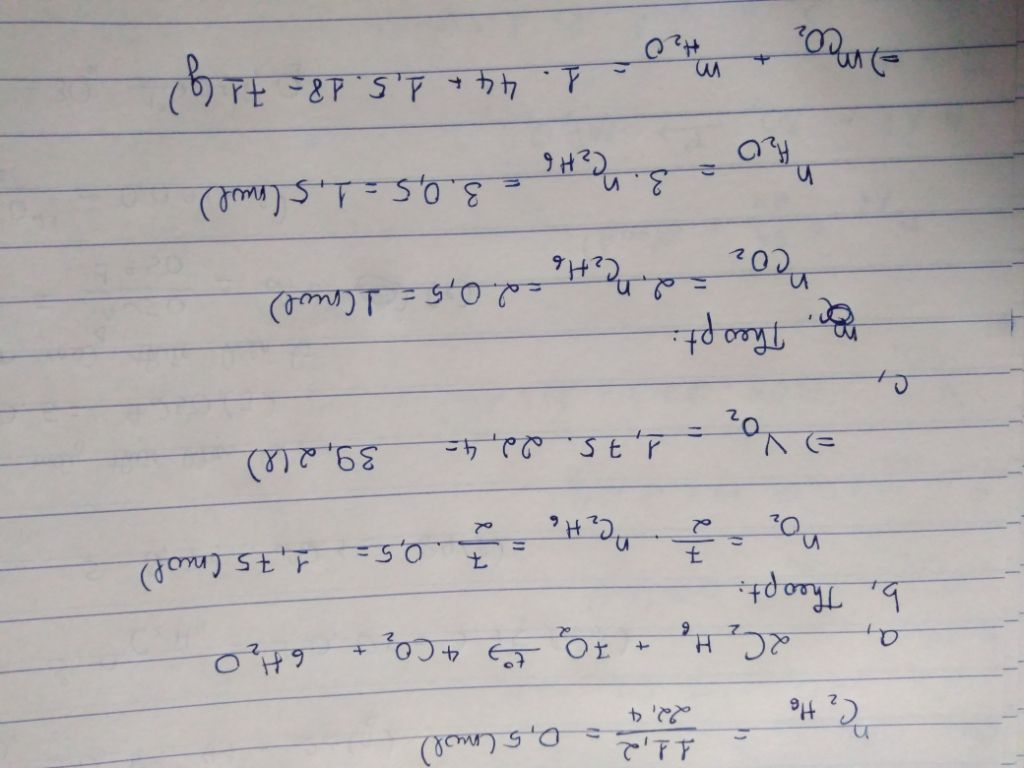 n C₂H₆ = 11,2/22,4 = 0,5 (mol)
a, 2C₂H₆ + 7O₂ t°→ 4CO₂ + 6H₂O
b, Theo pt:
n O₂ = 7/2 . n C₂H₆ = 7/2 . 0,5 = 1,75 (mol)
=> V O₂ = 1,75 . 22,4 = 39,2 (l)
c,
Theo pt:
n CO₂ = 2. n C₂H₆ = 2. 0,5 = 1 (mol)
n H₂O = 3. n C₂H₆ = 3. 0,5 = 1,5 (mol)
=> m CO₂ + m H₂O = 1. 44 + 1,5. 18 = 71 (g)